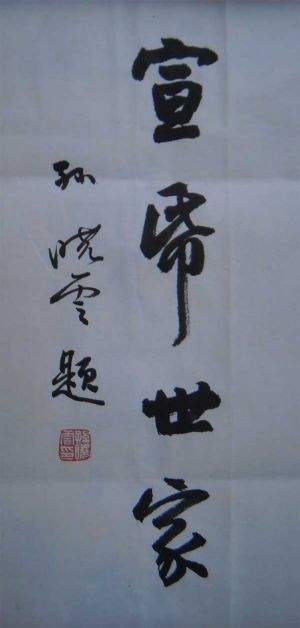 宣帋世家
孙晓云题